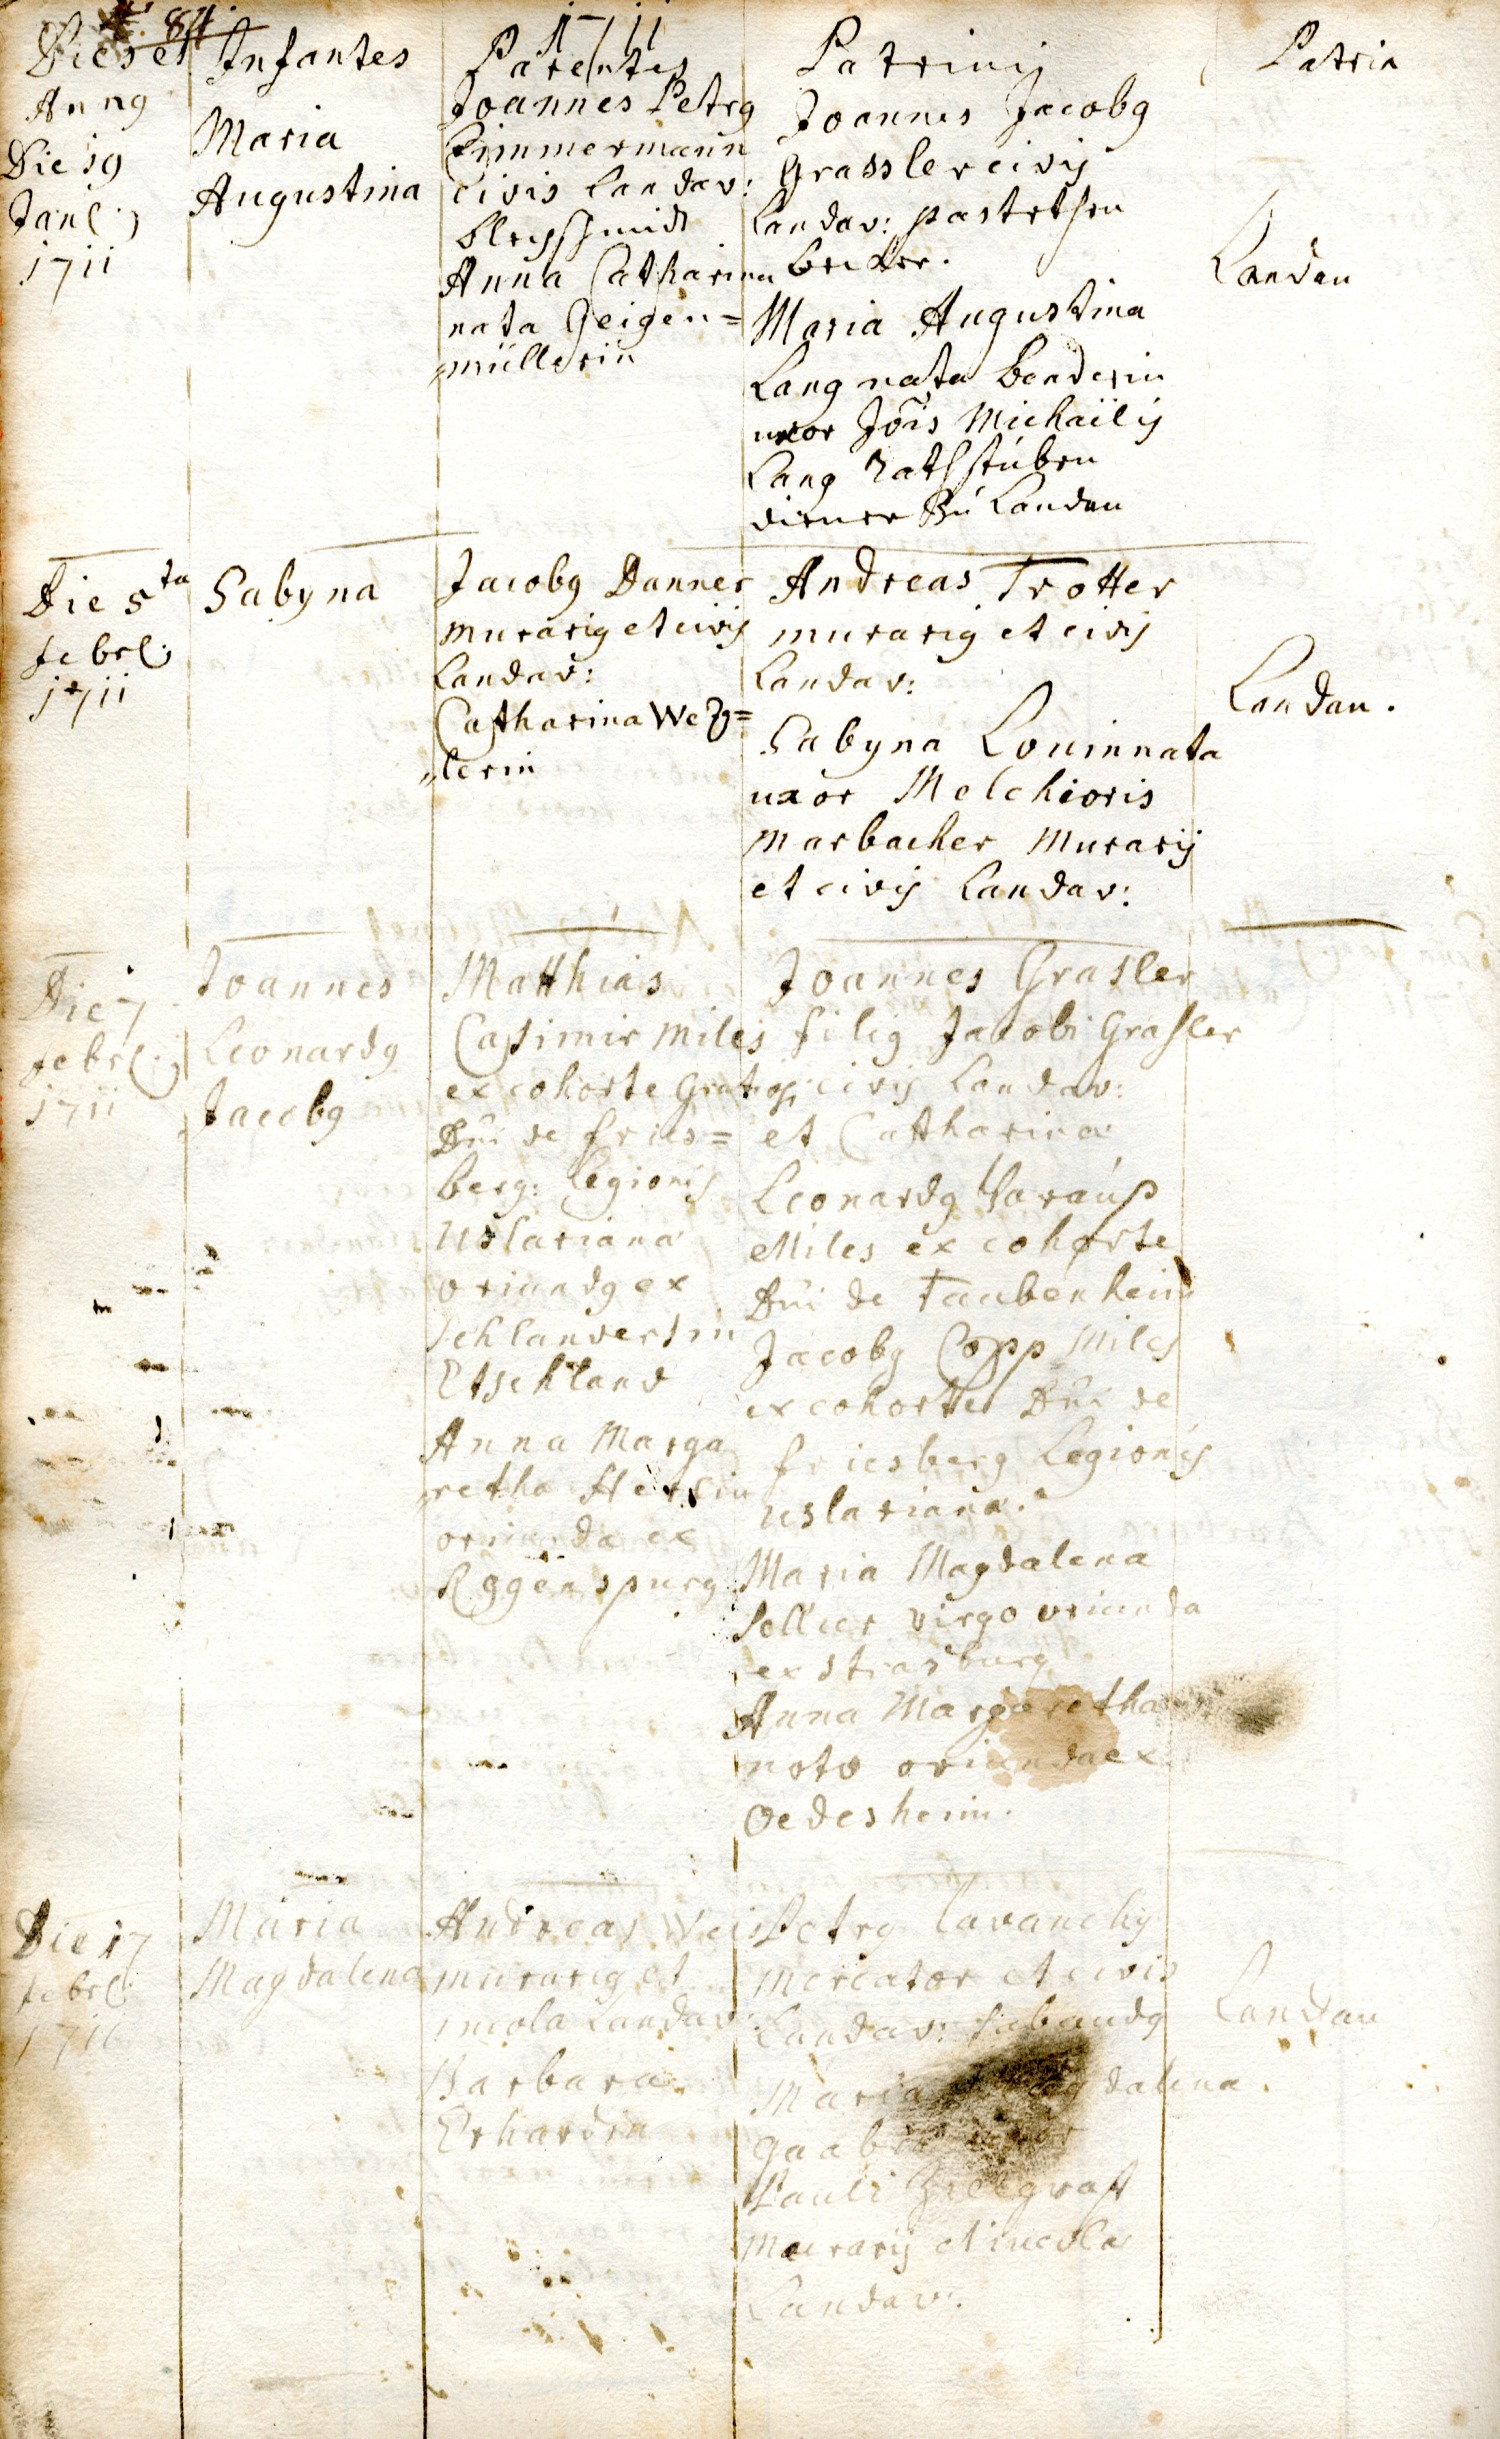 84.
1711
Dies et
Anng
Infantes
Parentes
Patrinij
Patria
Die 19
Janl:
1711
Maria
Augustina
Joannes Petrg
Zimmermann
Civis Landav:
bleyschmidt
Anna Catharina
nata Geigen=
„müllerin
Joannes Jacobg
Grassler civis
Landav: pastethen
becker.
Maria Augustina
Lang nata benderin
uxor Jois Michaëlis
Lang Rathstuben
diener Zu Landau
Landau
Die 5ta
febrl:
1711
Sabyna
Jacobg Danner
murarig et civis
Landav:
Catharina Wetz=
„lerin
Andreas Trotter
murarig et civis
Landav:
Sabyna Lonin nata
uxor Melchioris
Marbacher Murarij
et civis Landav:
Landau.
Die 7
febrl:
1711
Joannes
Leonardg
Jacobg
Matthias
Casimir miles
ex cohorte
Dni de fries=
berg: Legionis
Uslariana
oriundg ex
Schlanders in
Etschland
Anna Marga
„retha
oriunda ex
Regenspurg
Joannes Grasler
filig Jacobi Grasler
civis Landav:
et Catharina
Leonardg
Miles ex cohorte
Dni de Taubenheim
Jacobg Copp Miles
ex cohorte Dni de
friesberg Legionis
Uslariana.
Maria Magdalena
Sollier virgo oriunda
ex strasburg
Anna Margaretha
oriunda ex
Oedesheim.
Die 17
febrl:
1711
Maria
Magdalena
Andreas Weis
murarig et
incola Landav:
Barbara
Erhardin
Petrg Cavanchy
mercator et civis
Landav: sabaudg
Maria Magdalena
uxor
Pauli Zillgraff
Murarij et incola
Landav:
Landau